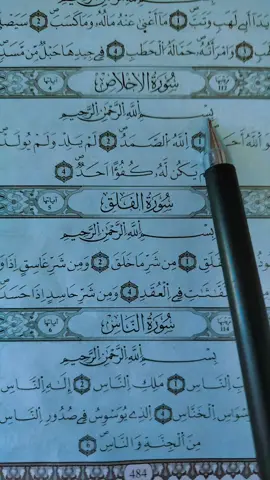 يَدَآ أَبِے لَهَبٖ وَتَبَّ ① مَآ أَغْنٰى عَنْهُ مَالُهُۥ وَمَا كَسَبَ ② سَيَصْلٰى
وَامْرَأَتُهُۥ حَمَّالَةُ اُ۬لْحَطَبِ ④ فِے جِيدِهَا حَبْلٞ مِّن مَّسَدِۢ
سُورَةُ الْإِخْلَاصِ
بِسْمِ اِ۬للَّهِ اِ۬لرَّحْمَٰنِ اِ۬لرَّحِيمِ
اَ۬للَّهُ أَحَدٌ ① اَ۬للَّهُ اُ۬لصَّمَدُ ② لَمْ يَلِدْ وَلَمْ يُولَدْ
يَكُن لَّهُۥ كُفُؤًا أَحَدٌۢ ④
سُورَةُ الْفَلَقِ
بِسْمِ اِ۬للَّهِ اِ۬لرَّحْمَٰنِ اِ۬لرَّحِيمِ
اِ۬لْفَلَقِ ① مِن شَرِّ مَا خَلَقَ ② وَمِن شَرِّ غَاسِقٍ اِذَا
اَ۬لنَّفَّٰثَٰتِ فِے اِ۬لْعُقَدِ ④ وَمِن شَرِّ حَاسِدٍ اِذَا حَسَدَ
سُورَةُ النَّاسِ
بِسْمِ اِ۬للَّهِ اِ۬لرَّحْمَٰنِ اِ۬لرَّحِيمِ
اِ۬لنَّاسِ ① مَلِكِ اِ۬لنَّاسِ ② إِلَٰهِ اِ۬لنَّاسِ
اِ۬لْوَسْوَاسِ اِ۬لْخَنَّاسِ ④ اِ۬لذِے يُوَسْوِسُ فِے صُدُورِ اِ۬لنَّاسِ
مِنَ اَ۬لْجِنَّةِ وَالنَّاسِ ⑥
484